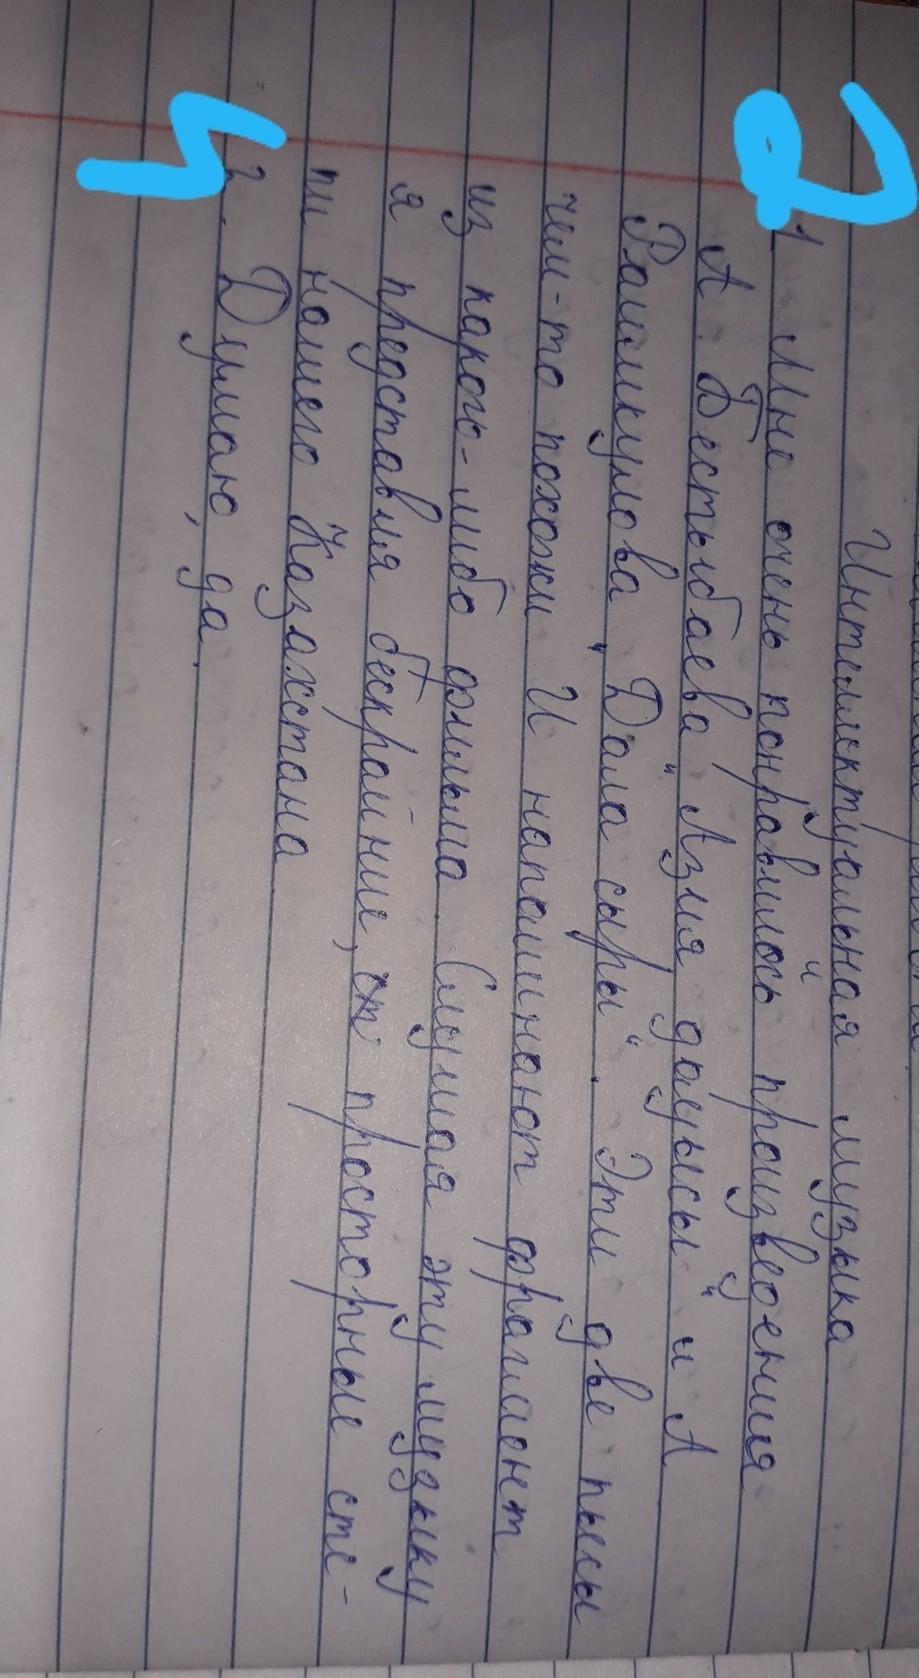 Интеллектуальная музыка
2
1. Мне очень понравилось произведения
А. Бестыбаева "Азия дауысы" и А
Раимкулова "Дала сыры". Эти две пьесы
чем-то похожи И напоминают фрагмент
из какого-либо фильма. Слушая эту музыку
я представля бескрайние, просторные сте-
пи нашего Казахстана
4
2. Думаю, да.